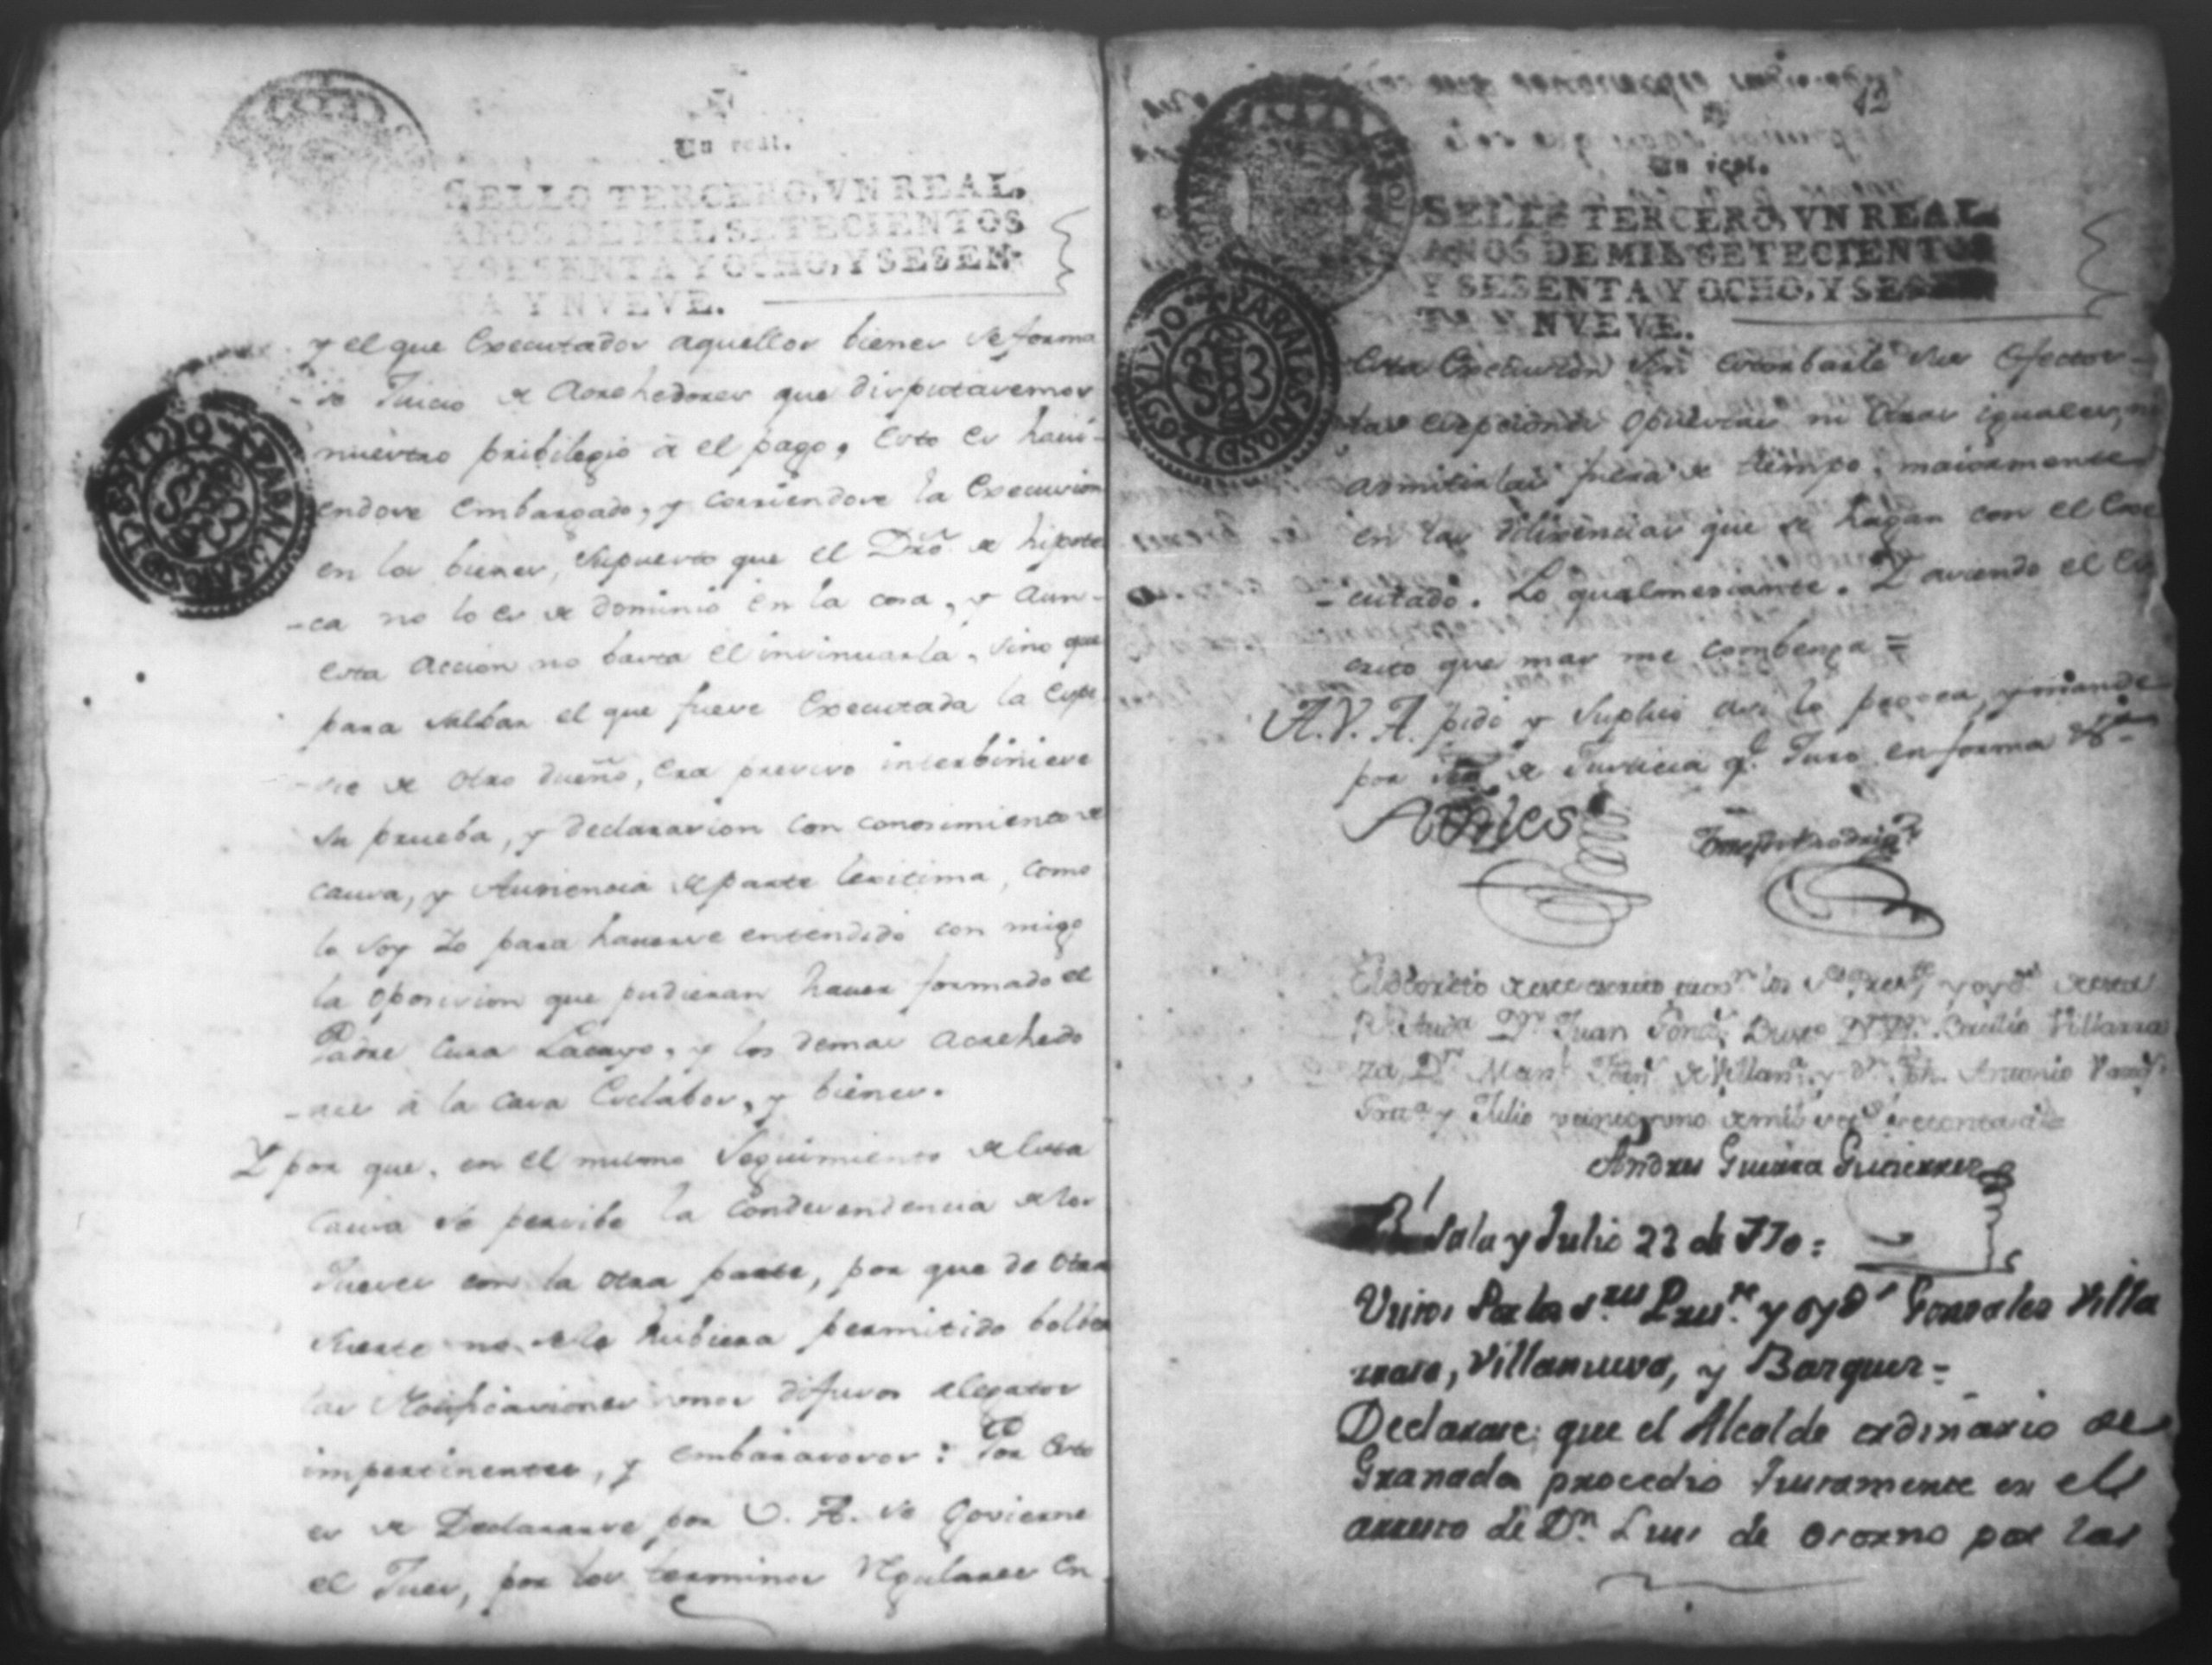 Un real.
SELLO TERCERO, VN REAL,
AÑOS DE MIL SETECIENTOS
Y SESENTA Y OCHO, Y SESEN-
TA Y NVEVE.
y el que Executador aquellos bienes se forma
se Juicio de Acrehedores que disputaremos
nuestro pribilegio á el pago, esto es havi-
endose embargado, y corriendose la Execusion
en los bienes, supuesto que el Dro. de hipote
-ca no lo es de dominio en la cosa, y Aun-
esta accion no basta el insinuarla, sino que
para salbar el que fuese Executada la Espe
-cie de otro dueño, era preciso interbiniese
su prueba, y declarasion con conosimiento de
causa, y Audiencia de parte lexitima, como
lo soy Yo para haverse entendido con migo
la oposision que pudieran haver formado el
Padre Cura Lacayo, y los demas acrehedo
-res á la casa Esclabos, y bienes.
Y por que, en el mismo seguimiento de esta
causa se persibe la condesendencia de los
Jueses con la otra parte, por que de otra
suerte no se le hubiera permitido bolber
las Notificasiones unos difusos alegatos
impertinentes, y embarasosos: Por esto
es de Declararse por V. A. se govierne
el Jues, por los terminos Regulares en
12
Un real.
SELLO TERCERO, VN REAL
AÑOS DE MIL SETECIENTOS
Y SESENTA Y OCHO, Y SESEN
TA Y NVEVE.
PARA LOS AÑOS D 1769 Y 70
esta Execusion sin estorbarle sus efectos
las exepciones opuestas ni otras iguales, ni
admitirlas fuera de tiempo, maiormente
en las dilixencias que se hagan con el Exe
-cutado. Lo qual mediante. Y aviendo el es
crito que mas me combenga =
A. V. A. pido y suplico asi lo provea, y mande
por ser de Justicia q.e Juro en forma &.a
El decreto de este escrito
R.l Aud.a D.n Juan Gonz.z Busto D.n Basilio Villarra
za, D.n Man.l Fern.z de Villan.a y D.n Jph. Antonio
Goat.a y Julio veinte y uno de mil set.s setenta a.s =
Andres Guerra Gutierrez
R.l Sala y Julio 23 de 770 =
Vistos Por los S.res Pres.te y oyd.s Gonzales Villa
rrasa, Villanueva, y Basquez =
Declarase que el Alcalde ordinario de
Granada procedio Justamente en el
arresto de D.n Luis de Osorno por las